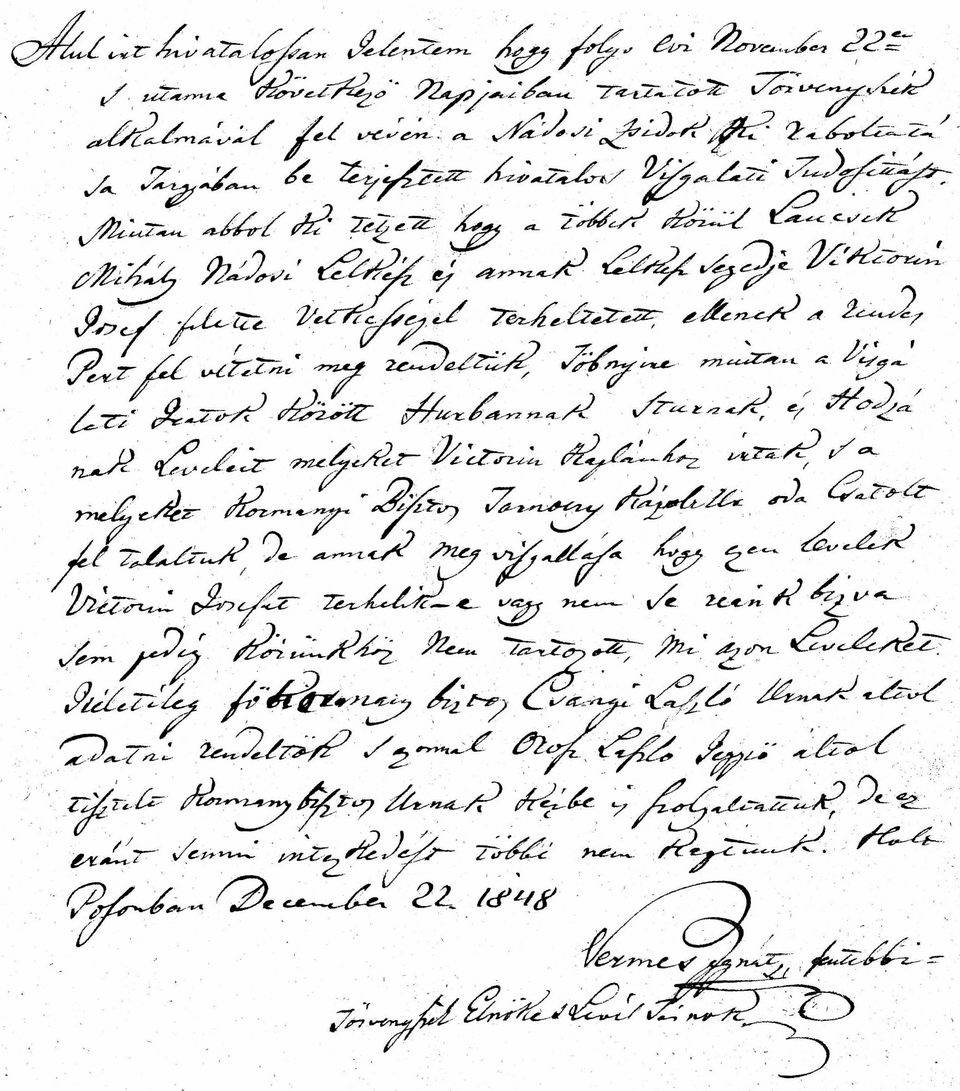 Alul irt hivatalossan Jelentem hogy folyo Evi November 22en
s utanna Következö Napjaiban tartatott Törvenyszék
alkalmával fel vévén a Nádosi Zsidok Ki raboltatá
sa Targyában be terjesztett hivatalos Visgalati Tudosittást.
Miutan abbol Ki tetzett hogy a többek Közül Lancsek
Mihály Nádosi Lelkész és annak Lelkész segedje Viktorin
Josef felette Vetkességel terheltetett, ellenek a rendes
Pert fel vétetni meg rendeltük, Töbnyire miutan a Visgá
leti Iratok Között Hurbannak Sturnak, és Hodzsá
nak Leveleit melyeket Victorin Kaplánhoz irtak, s a
melyeket Kormanyi Biztos Tarnoczy Kázmér oda Csatolt
fel talaltuk, de annak meg visgallása hogy ezen levelek
Victorin Josefet terhelik-e vagy nem se reánk bizva
sem pedig Körünkhöz Nem tartozott, Mi azon Leveleket
Itéletileg fö Kormany biztos Csányi László Urnak altal
adatni rendeltök s azonnal Orosz Laszlo Jegyzö által
tisztelt Kormanybisztos Urnak Kézbe is szolgaltattuk, de ez
eránt semmi intezkedést többé nem Kaptunk. Kelt
Posonban December 22. 1848
Vermes Ignátz, fentebbi=
Törvenyszék Elnöke s Levél Tárnok